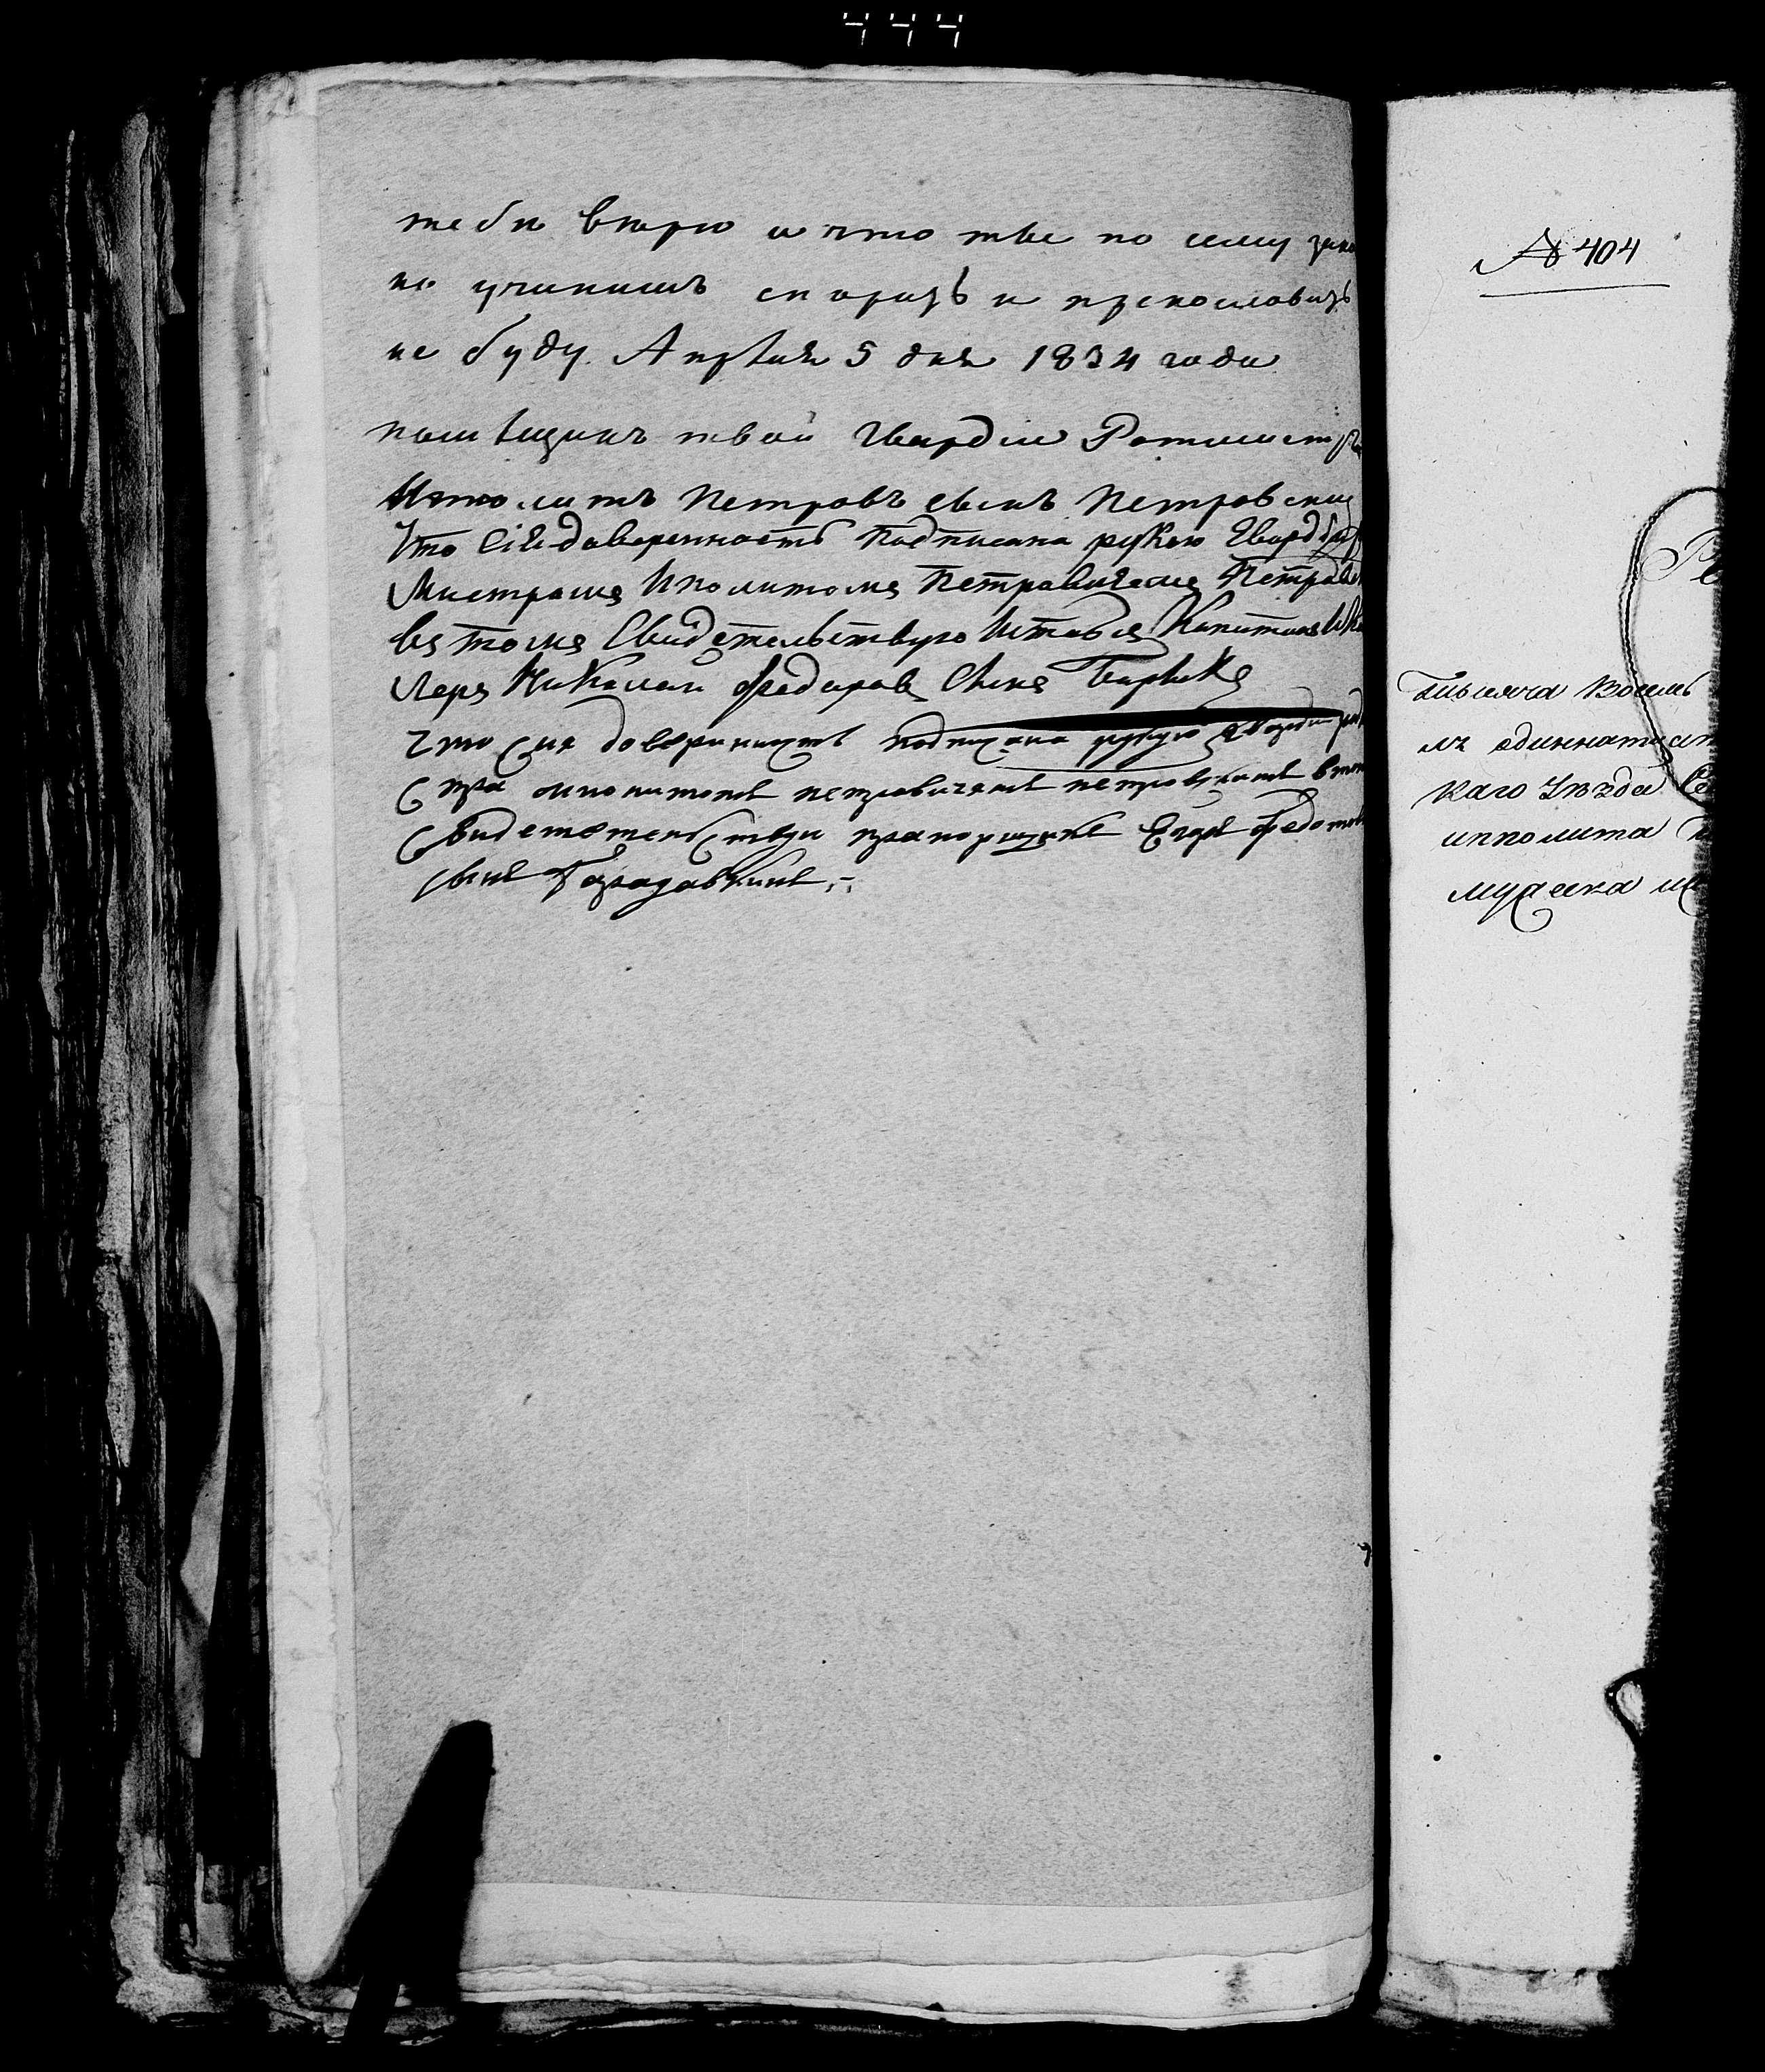 444
тебѣ вѣрю и что ты по сему зако
но учинишъ спорить и прекословить
не буду. Апрѣля 5 дня 1834 года
помѣщикъ твой Гвардіи Ротмистръ
Иполитъ Петровъ сынъ Петровски
Что Сія доверенность Подписана рукою Гвард
Мистромъ Иполитомъ Петровичемъ Петров
въ томъ Свидѣтельствую Штабсъ Капитанъ и Ка
леръ Николай Федоровъ Сынъ
что сия довериность подписана рукою гвардии
стра иполитомъ петровичемъ петровскимъ втом
свидететельствую прапорщикъ Егоръ Федотов
сынъ
№ 404
тысяча Восемь
мъ одиннатцат
каго Уѣзда Се
ипполита п
мужеска